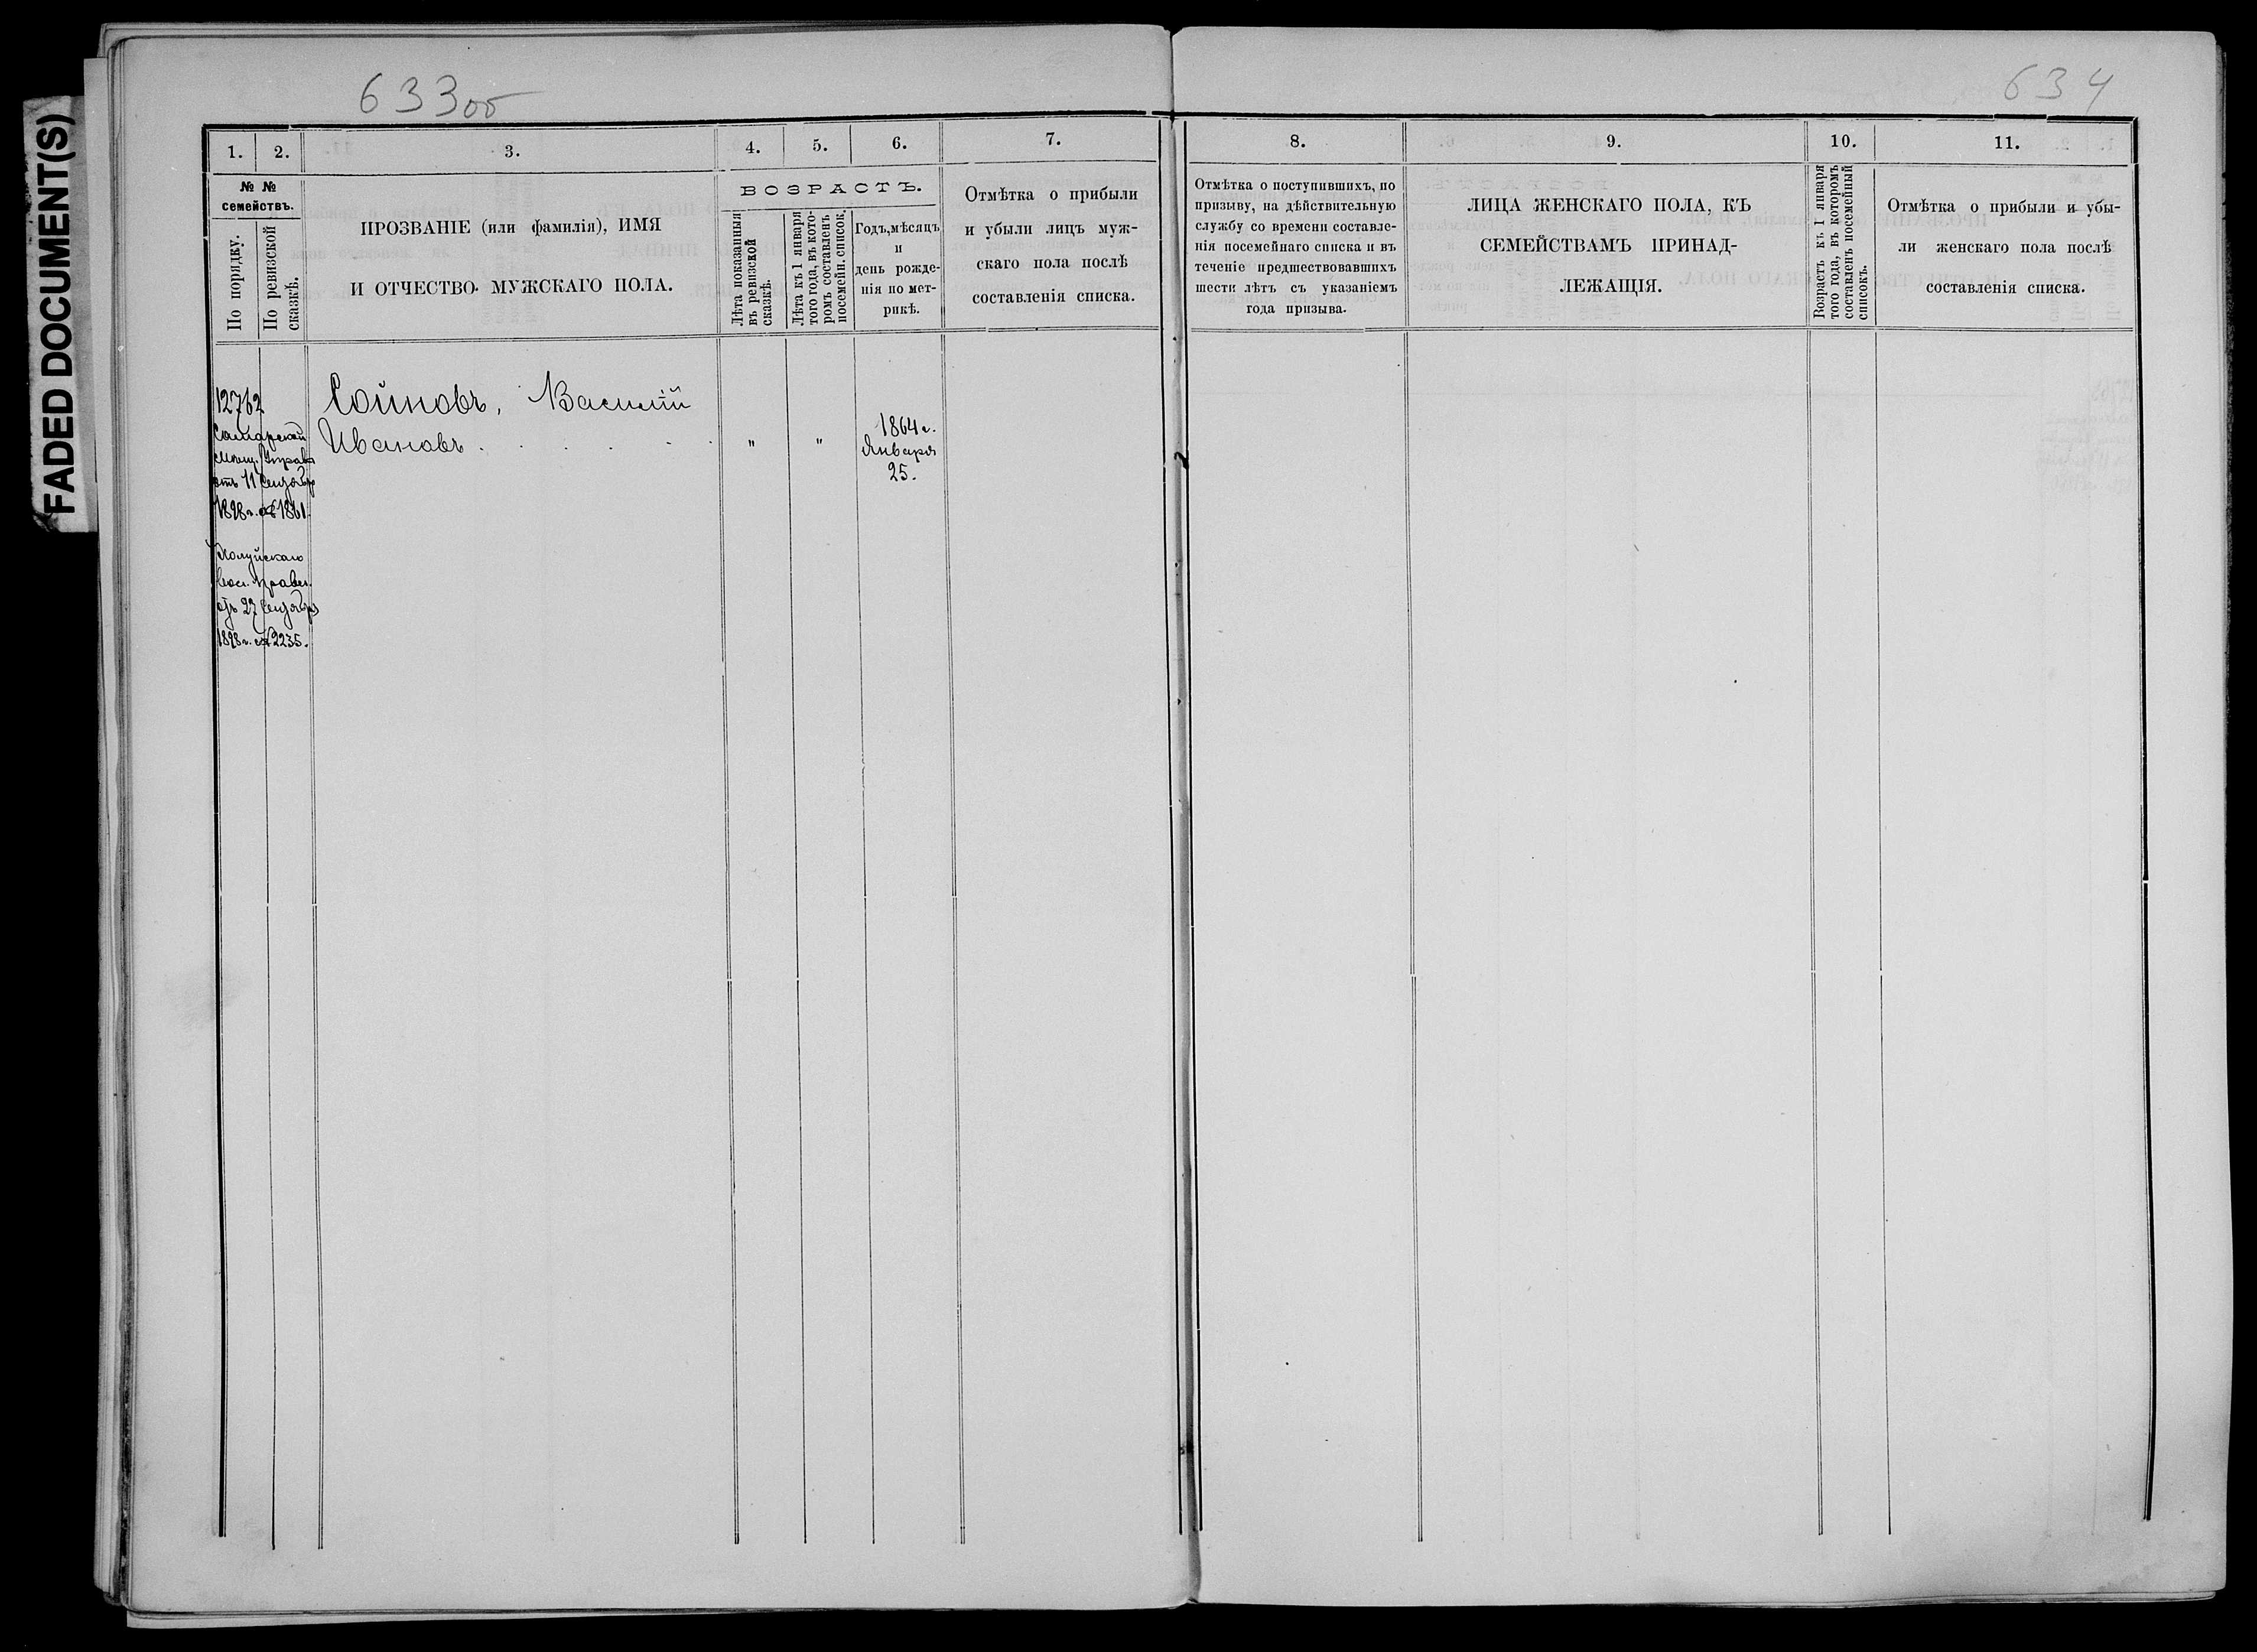 FADED DOCUMENT(S)
633об
634
1. 2. 3. 4. 5. 6. 7. 8. 9. 10. 11.
№ № семействъ.
По порядку.
По ревизской сказкѣ.
ПРОЗВАНІЕ (или фамилія), ИМЯ
И ОТЧЕСТВО МУЖСКАГО ПОЛА.
ВОЗРАСТЪ.
Лѣта показанныя
въ ревизской
сказкѣ.
Лѣта къ 1 января
того года, въ кото-
ромъ составленъ
посемейн. список.
Годъ, мѣсяцъ
и
день рожде-
нія по мет-
рикѣ.
Отмѣтка о прибыли
и убыли лицъ муж-
скаго пола послѣ
составленія списка.
Отмѣтка о поступившихъ, по
призыву, на дѣйствительную
службу со времени составле-
нія посемейнаго списка и въ
теченіе предшествовавшихъ
шести лѣтъ съ указаніемъ
года призыва.
ЛИЦА ЖЕНСКАГО ПОЛА, КЪ
СЕМЕЙСТВАМЪ ПРИНАД-
ЛЕЖАЩІЯ.
Возрастъ къ 1 января
того года, въ которомъ
составленъ посемейный
списокъ.
Отмѣтка о прибыли и убы-
ли женскаго пола послѣ
составленія списка.
12762
Самарской
Мѣщ. Управ
отъ 11 Сентября
1898 г. № 1861.
Вол. Правл.
отъ 27 Сентября
1898 г. № 2235.
Сойновъ, Василій
Ивановъ . . . . . " "
1864 г.
Января
25.